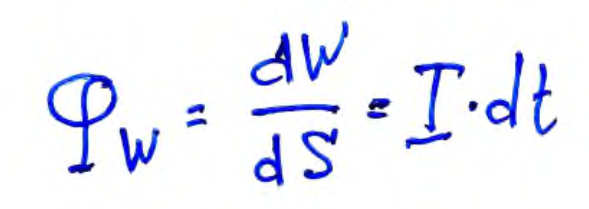 φ_W = dW/dS = I·dt